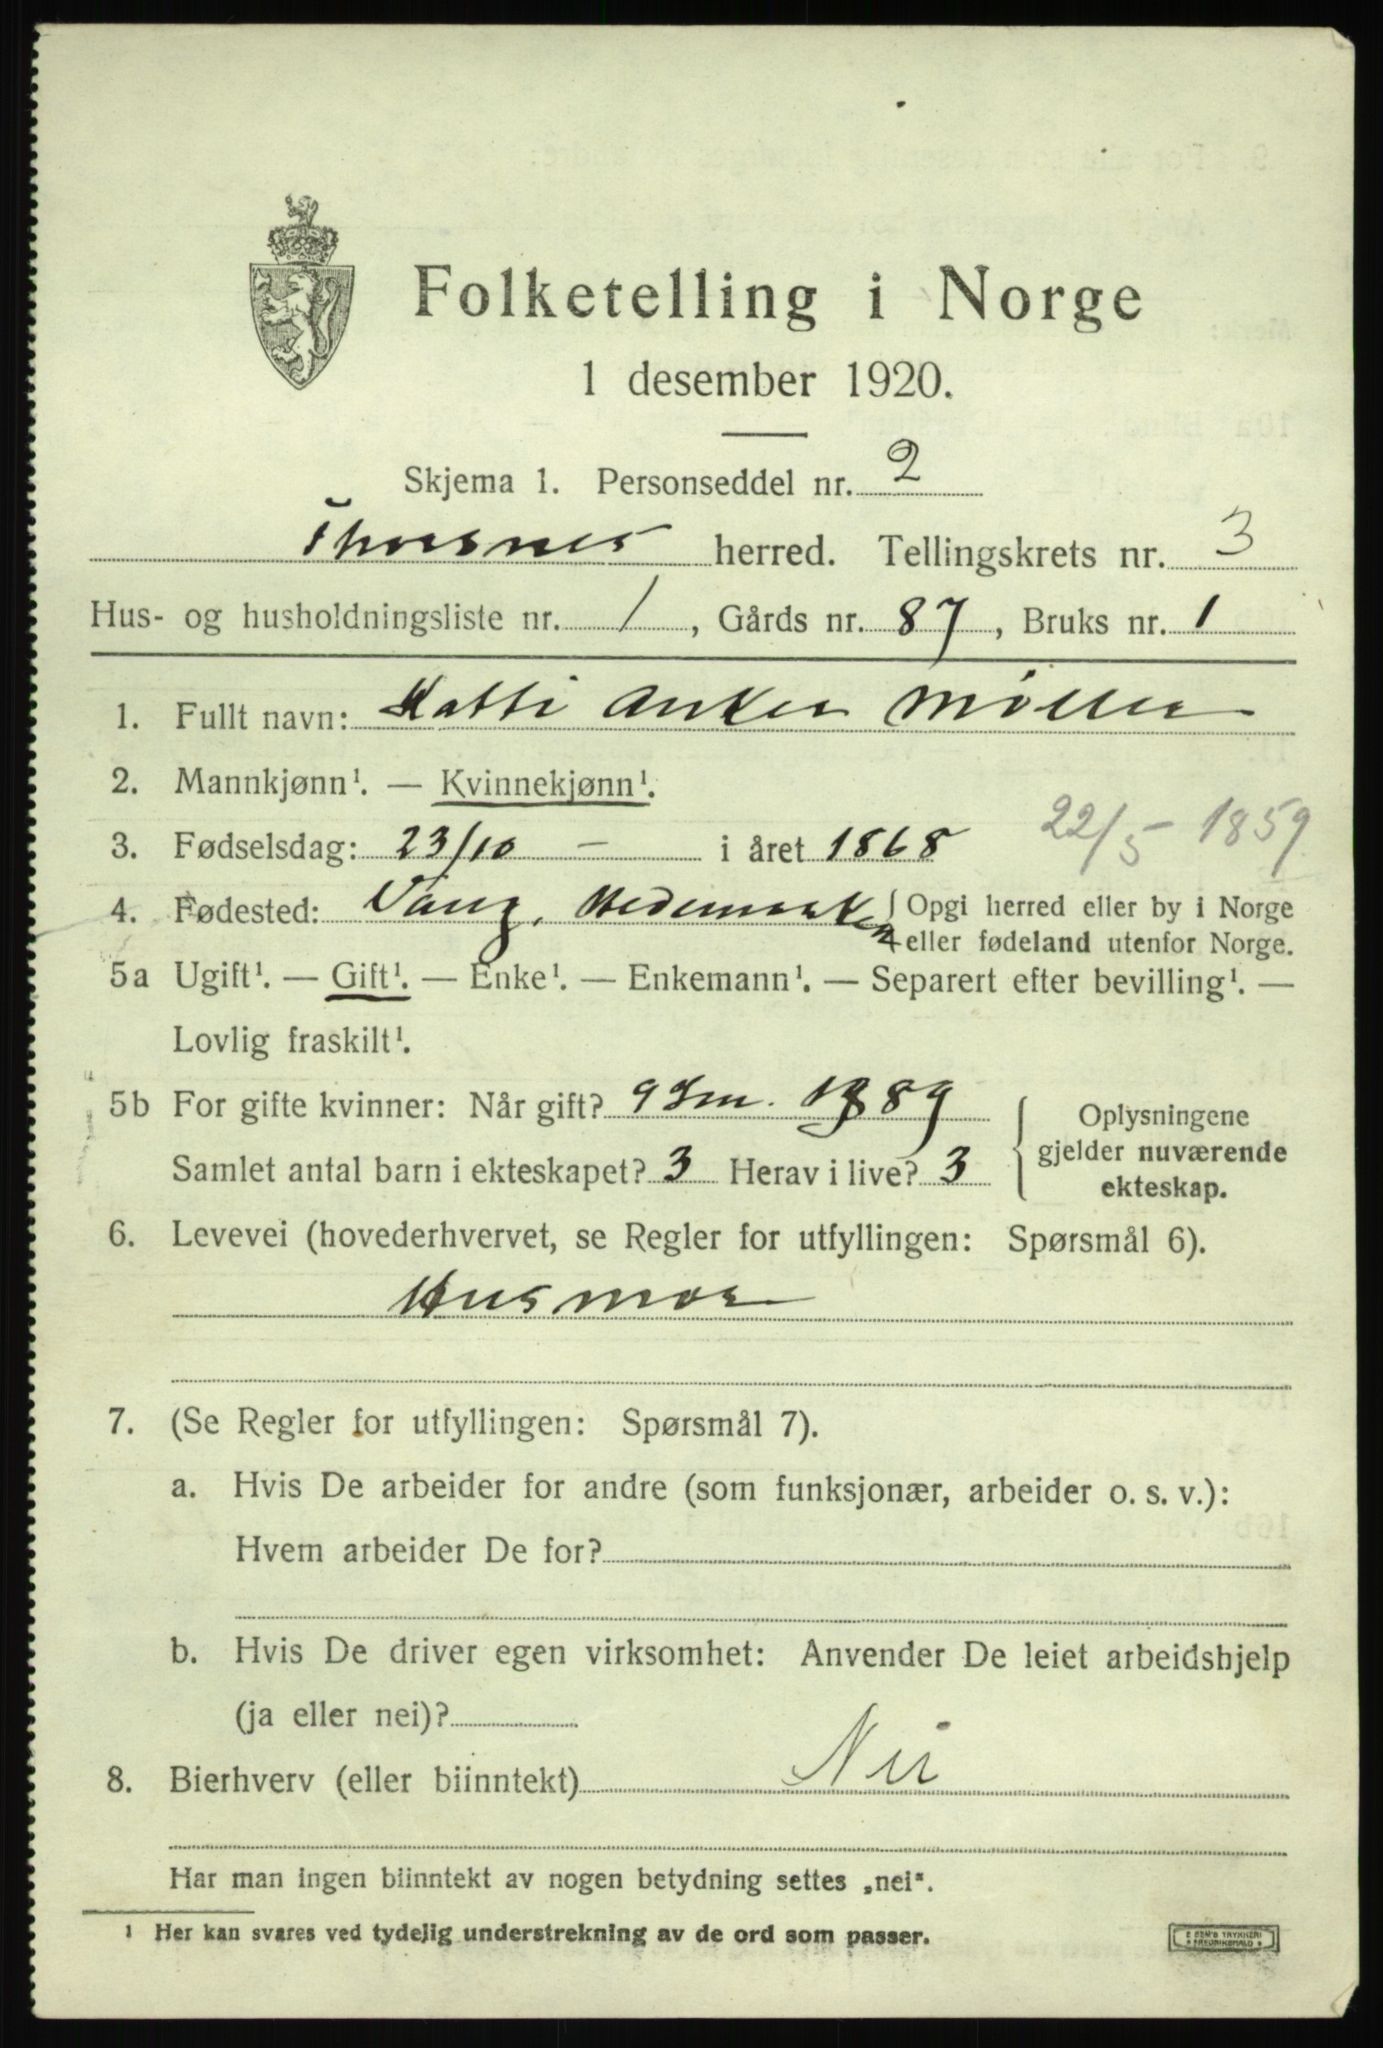 Folketelling i Norge
1 desember 1920.
Skjema 1. Personseddel nr. 2
Thorsnes herred. Tellingskrets nr. 3
Hus- og husholdningsliste nr. 1, Gårds nr. 87, Bruks nr. 1
1. Fullt navn: Katti Anker Møller
2. Mannkjønn¹. — Kvinnekjønn¹.
3. Fødselsdag: 23/10 – i året 1868 22/5 - 1859
4. Fødested: Vang, Hedemarken { Opgi herred eller by i Norge
eller fødeland utenfor Norge.
5a Ugift¹. — Gift¹. — Enke¹. — Enkemann¹. — Separert efter bevilling¹. —
Lovlig fraskilt¹.
5b For gifte kvinner: Når gift? 9 Jan. 1889
Samlet antal barn i ekteskapet? 3 Herav i live? 3
{ Oplysningene
gjelder nuværende
ekteskap.
6. Levevei (hovederhvervet, se Regler for utfyllingen: Spørsmål 6).
Husmor
7. (Se Regler for utfyllingen: Spørsmål 7).
a. Hvis De arbeider for andre (som funksjonær, arbeider o. s. v.):
Hvem arbeider De for?
b. Hvis De driver egen virksomhet: Anvender De leiet arbeidshjelp
(ja eller nei)?
8. Bierhverv (eller biinntekt) Nei
Har man ingen biinntekt av nogen betydning settes „nei".
¹ Her kan svares ved tydelig understrekning av de ord som passer.